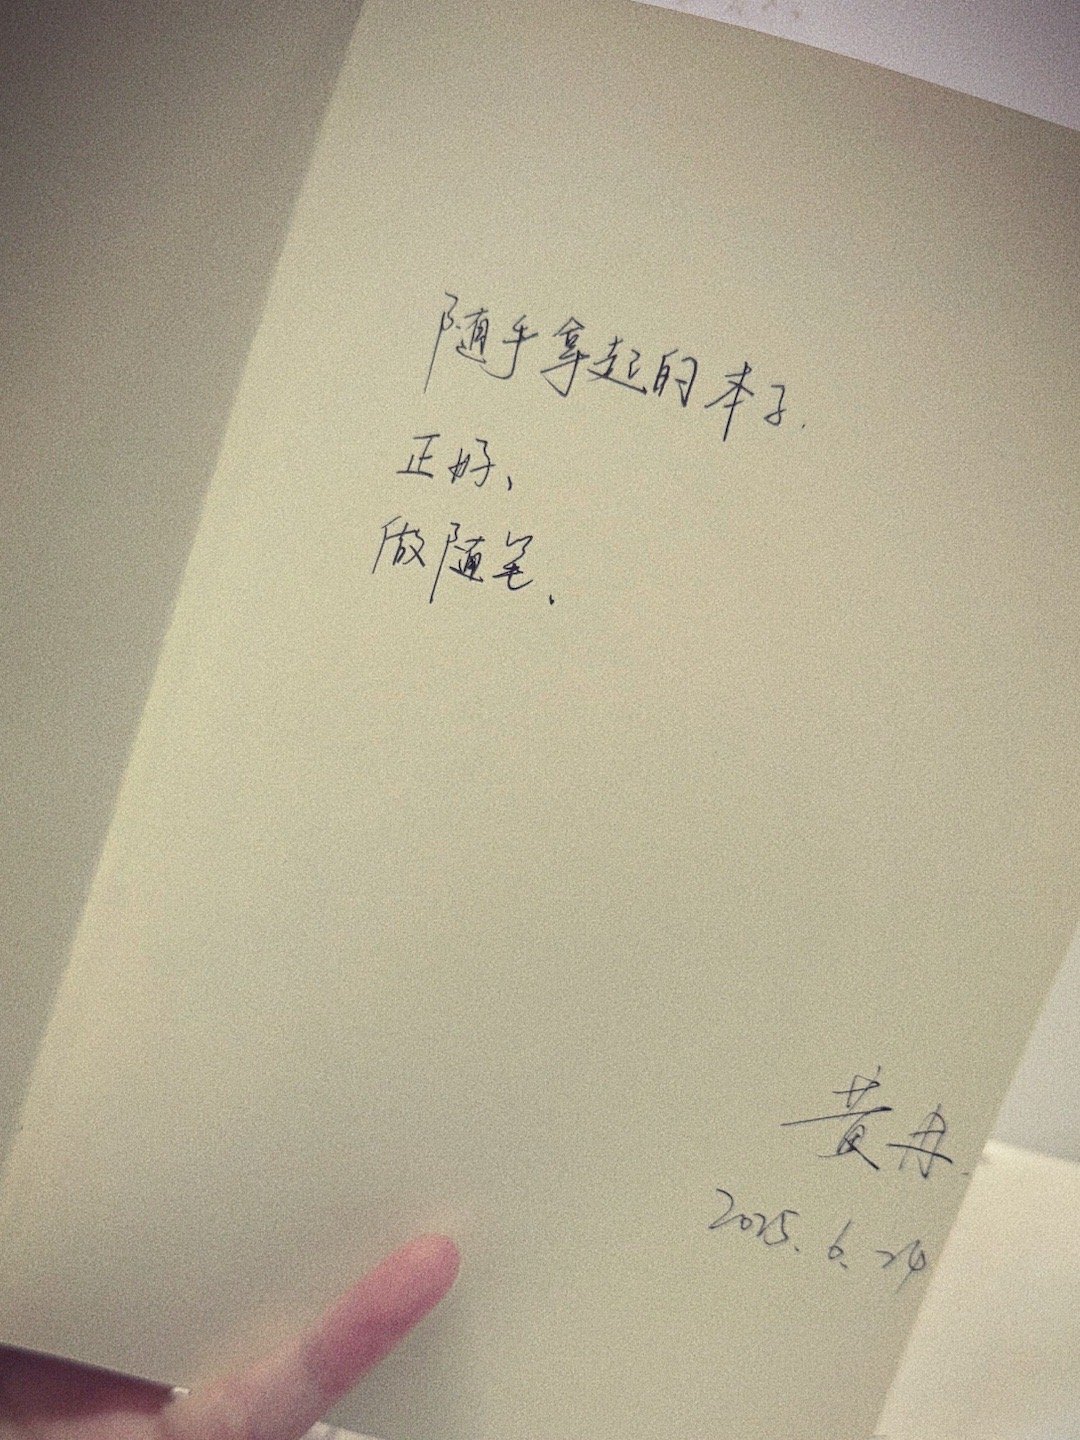 随手拿起的本子.
正好、
做随笔、
黄丹.
2025.6.24